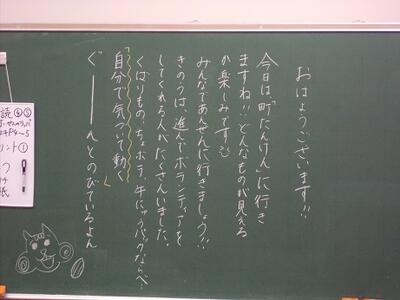 おはようございます!!
今日は「町たんけん」に行き
ますね!!どんなものが見える
か楽しみです
みんなであんぜんに行きましょう!!
きのうは、進んでボランティアを
してくれる人がたくさんいました。
くばりもの、ちょボラ、牛にゅうパックならべ
「自分で気づいて動く」
ぐーーんとのびているよん
読④⑤
P4~5
リント①
紙